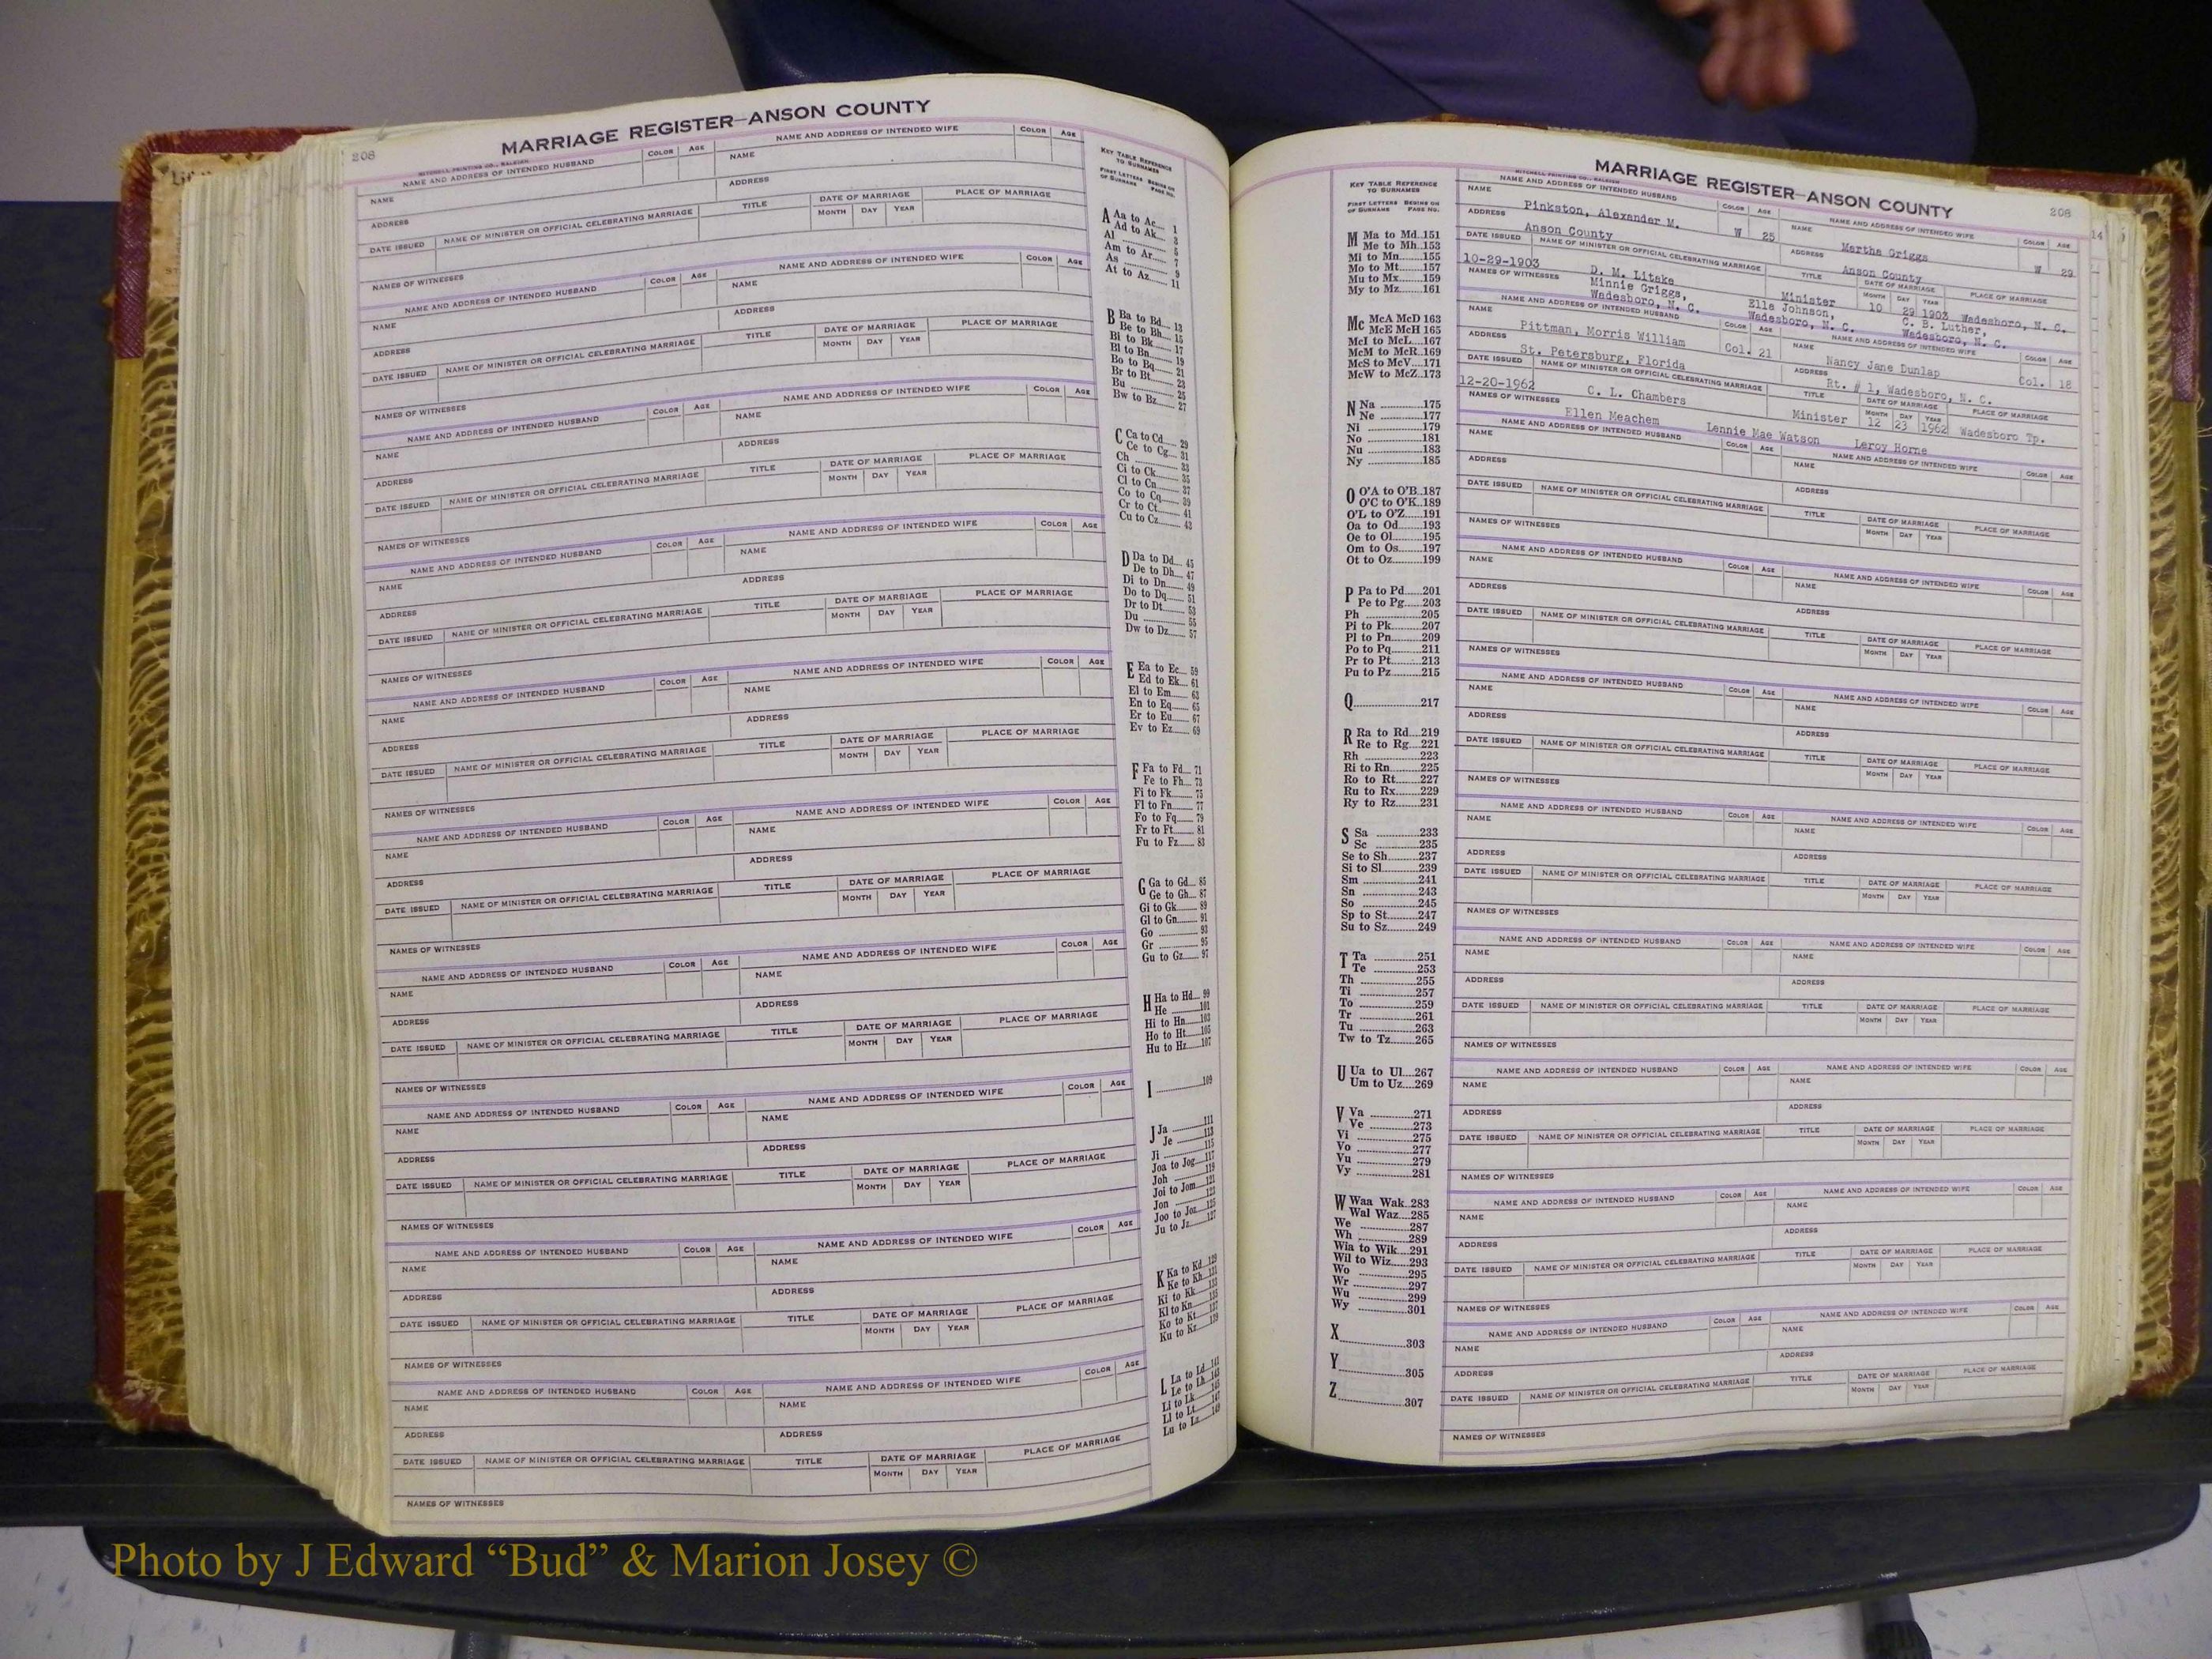 208
MARRIAGE REGISTER—ANSON COUNTY
MITCHELL PRINTING CO., RALEIGH
NAME AND ADDRESS OF INTENDED HUSBAND COLOR AGE NAME AND ADDRESS OF INTENDED WIFE COLOR AGE
NAME NAME
ADDRESS ADDRESS
DATE ISSUED NAME OF MINISTER OR OFFICIAL CELEBRATING MARRIAGE TITLE DATE OF MARRIAGE PLACE OF MARRIAGE
MONTH DAY YEAR
NAMES OF WITNESSES
NAME AND ADDRESS OF INTENDED HUSBAND COLOR AGE NAME AND ADDRESS OF INTENDED WIFE COLOR AGE
NAME NAME
ADDRESS ADDRESS
DATE ISSUED NAME OF MINISTER OR OFFICIAL CELEBRATING MARRIAGE TITLE DATE OF MARRIAGE PLACE OF MARRIAGE
MONTH DAY YEAR
NAMES OF WITNESSES
KEY TABLE REFERENCE
TO SURNAMES
FIRST LETTERS BEGINS ON
OF SURNAME PAGE NO.
A Aa to Ac 1
Ad to Ak 3
Al 5
Am to Ar 7
As 9
At to Az 11
B Ba to Bd 13
Be to Bh 15
Bi to Bk 17
Bl to Bn 19
Bo to Bq 21
Br to Bt 23
Bu 25
Bw to Bz 27
C Ca to Cd 29
Ce to Cg 31
Ch 33
Ci to Ck 35
Cl to Cn 37
Co to Cq 39
Cr to Ct 41
Cu to Cz 43
D Da to Dd 45
De to Dh 47
Di to Dn 49
Do to Dq 51
Dr to Dt 53
Du 55
Dw to Dz 57
E Ea to Ec 59
Ed to Ek 61
El to Em 63
En to Eq 65
Er to Eu 67
Ev to Ez 69
F Fa to Fd 71
Fe to Fh 73
Fi to Fk 75
Fl to Fn 77
Fo to Fq 79
Fr to Ft 81
Fu to Fz 83
G Ga to Gd 85
Ge to Gh 87
Gi to Gk 89
Gl to Gn 91
Go 93
Gr 95
Gu to Gz 97
H Ha to Hd 99
He 101
Hi to Hn 103
Ho to Ht 105
Hu to Hz 107
I 109
J Ja 111
Je 113
Ji 115
Joa to Jog 117
Joh 119
Joi to Jom 121
Jon 123
Joo to Joz 125
Ju to Jz 127
K Ka to Kd 129
Ke to Kh 131
Ki to Kk 133
Kl to Kn 135
Ko to Kt 137
Ku to Kz 139
L La to Ld 141
Le to Lh 143
Li to Lk 145
Ll to Lt 147
Lu to Lz 149
KEY TABLE REFERENCE
TO SURNAMES
FIRST LETTERS BEGINS ON
OF SURNAME PAGE NO.
M Ma to Md 151
Me to Mh 153
Mi to Mn 155
Mo to Mt 157
Mu to Mx 159
My to Mz 161
Mc McA McD 163
McE McH 165
McI to McL 167
McM to McR 169
McS to McV 171
McW to McZ 173
N Na 175
Ne 177
Ni 179
No 181
Nu 183
Ny 185
O O'A to O'B 187
O'C to O'K 189
O'L to O'Z 191
Oa to Od 193
Oe to Ol 195
Om to Os 197
Ot to Oz 199
P Pa to Pd 201
Pe to Pg 203
Ph 205
Pi to Pk 207
Pl to Pn 209
Po to Pq 211
Pr to Pt 213
Pu to Pz 215
Q 217
R Ra to Rd 219
Re to Rg 221
Rh 223
Ri to Rn 225
Ro to Rt 227
Ru to Rx 229
Ry to Rz 231
S Sa 233
Sc 235
Se to Sh 237
Si to Sl 239
Sm 241
Sn 243
So 245
Sp to St 247
Su to Sz 249
T Ta 251
Te 253
Th 255
Ti 257
To 259
Tr 261
Tu 263
Tw to Tz 265
U Ua to Ul 267
Um to Uz 269
V Va 271
Ve 273
Vi 275
Vo 277
Vu 279
Vy 281
W Waa Wak 283
Wal Waz 285
We 287
Wh 289
Wia to Wik 291
Wil to Wiz 293
Wo 295
Wr 297
Wu 299
Wy 301
X 303
Y 305
Z 307
MARRIAGE REGISTER—ANSON COUNTY
208
14
MITCHELL PRINTING CO., RALEIGH
NAME AND ADDRESS OF INTENDED HUSBAND COLOR AGE NAME AND ADDRESS OF INTENDED WIFE COLOR AGE
NAME Pinkston, Alexander M. W 25 NAME Martha Griggs W 29
ADDRESS Anson County ADDRESS Anson County
DATE ISSUED NAME OF MINISTER OR OFFICIAL CELEBRATING MARRIAGE TITLE DATE OF MARRIAGE PLACE OF MARRIAGE
MONTH DAY YEAR
10-29-1903 D. M. Litake Minister 10 29 1903 Wadesboro, N. C.
NAMES OF WITNESSES Minnie Griggs, Ella Johnson, C. B. Luther,
Wadesboro, N. C. Wadesboro, N. C. Wadesboro, N. C.
NAME AND ADDRESS OF INTENDED HUSBAND COLOR AGE NAME AND ADDRESS OF INTENDED WIFE COLOR AGE
NAME Pittman, Morris William Col. 21 NAME Nancy Jane Dunlap Col. 18
ADDRESS St. Petersburg, Florida ADDRESS Rt. # 1, Wadesboro, N. C.
DATE ISSUED NAME OF MINISTER OR OFFICIAL CELEBRATING MARRIAGE TITLE DATE OF MARRIAGE PLACE OF MARRIAGE
MONTH DAY YEAR
12-20-1962 C. L. Chambers Minister 12 23 1962 Wadesboro Tp.
NAMES OF WITNESSES Ellen Meachem Lennie Mae Watson Leroy Horne
NAME AND ADDRESS OF INTENDED HUSBAND COLOR AGE NAME AND ADDRESS OF INTENDED WIFE COLOR AGE
NAME NAME
ADDRESS ADDRESS
DATE ISSUED NAME OF MINISTER OR OFFICIAL CELEBRATING MARRIAGE TITLE DATE OF MARRIAGE PLACE OF MARRIAGE
MONTH DAY YEAR
NAMES OF WITNESSES
Photo by J Edward “Bud” & Marion Josey ©